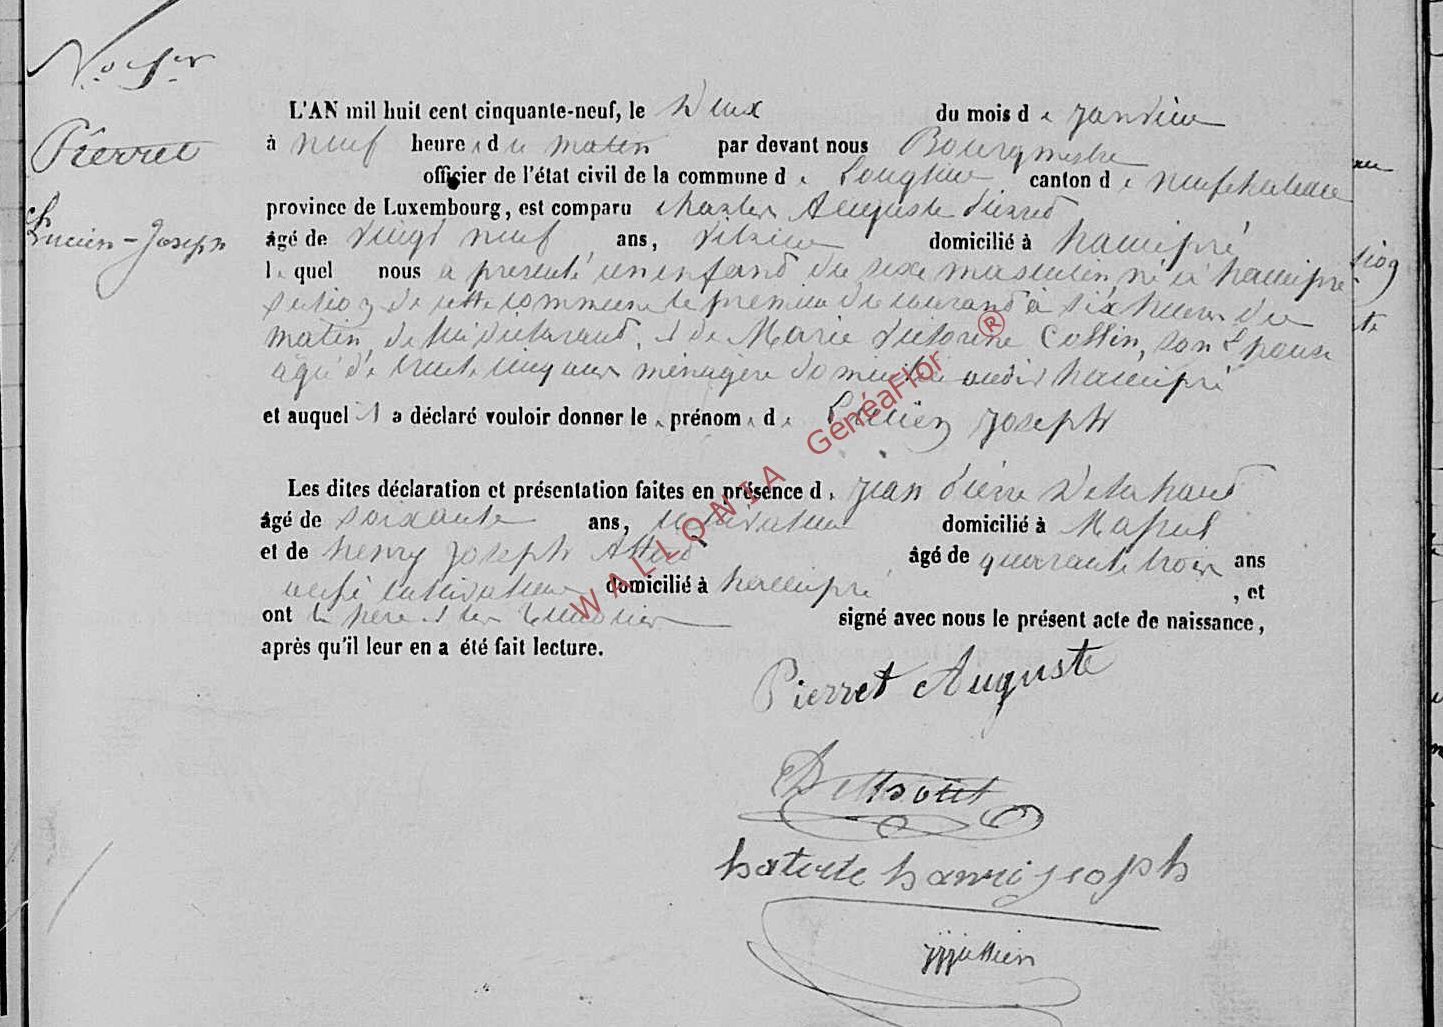 N.o 1er
Pierret
Lucien-Joseph
L'AN mil huit cent cinquante-neuf, le Deux du mois de Janvier
à neuf heures du matin par devant nous Bourgmestre
officier de l'état civil de la commune de Longlier canton de neufchateau
province de Luxembourg, est comparu charles Auguste Pierret
âgé de vingt neuf ans, domicilié à hamipré
lequel nous a presenté un enfant du sexe masculin, né à hamipré
section de cette commune le premier du courant à six heures du
matin, de lui déclarant, et de Marie victorine Collin, son Epouse
agée de trente cinq ans ménagère domiciliée audit hamipré
et auquel il a déclaré vouloir donner le prénom de Lucien Joseph
Les dites déclaration et présentation faites en présence de Jean Pierre
âgé de soixante ans, cultivateur domicilié à Massul
et de henry Joseph âgé de quarante trois ans
aussi cultivateur domicilié à hamipré , et
ont le père et les témoins signé avec nous le présent acte de naissance,
après qu'il leur en a été fait lecture.
Pierret Auguste
WALLONIA GénéaFlor ®